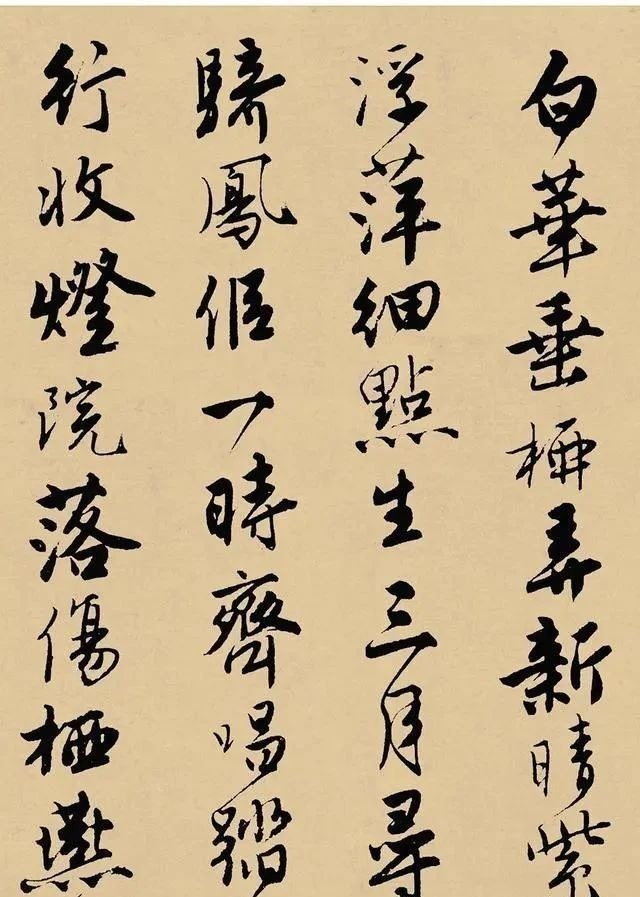 白華垂柳弄新晴紫
浮萍細點生三月尋
騎鳳侶一時齊唱踏
行收燈院落傷栖燕